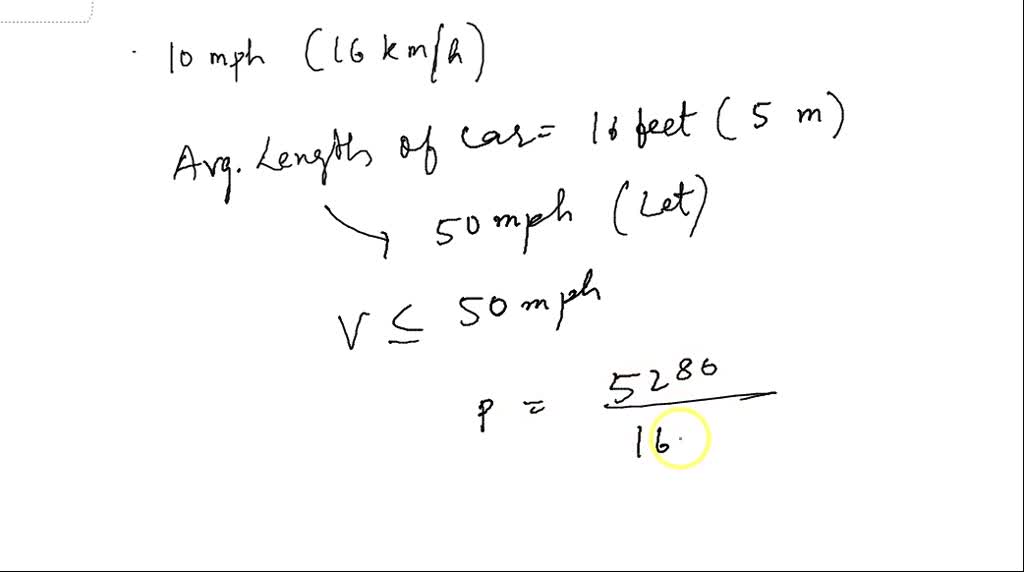 10 mph (16 km/h)
Avg. Length of car = 16 feet (5 m)
50 mph (Let)
V ≤ 50 mph
P = 5280
16